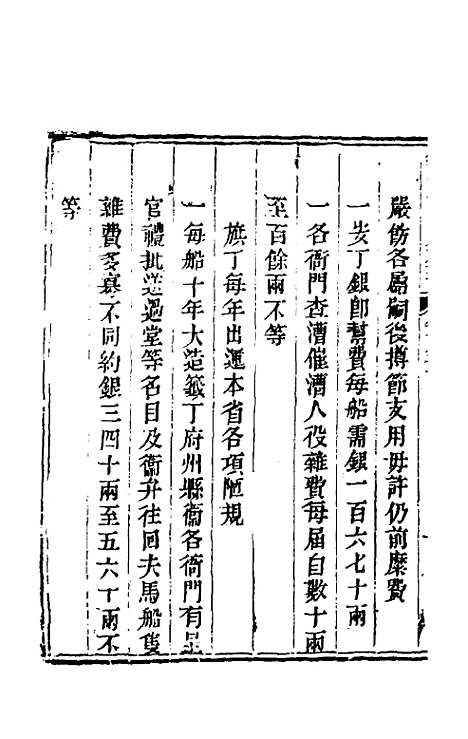 嚴飭各屬嗣後撙節支用毋許仍前糜費
一炎丁銀即幫費每船需銀一百六七十兩
一各衙門查漕催漕人役雜費每屆自數十兩
至百餘兩不等
旗丁每年出運本省各項陋規
一每船十年大造籤丁府州縣衞各衙門有呈
官禮批造過堂等名目及衞弁往囘夫馬船隻
雜費多寡不同約銀三四十兩至五六十兩不
等